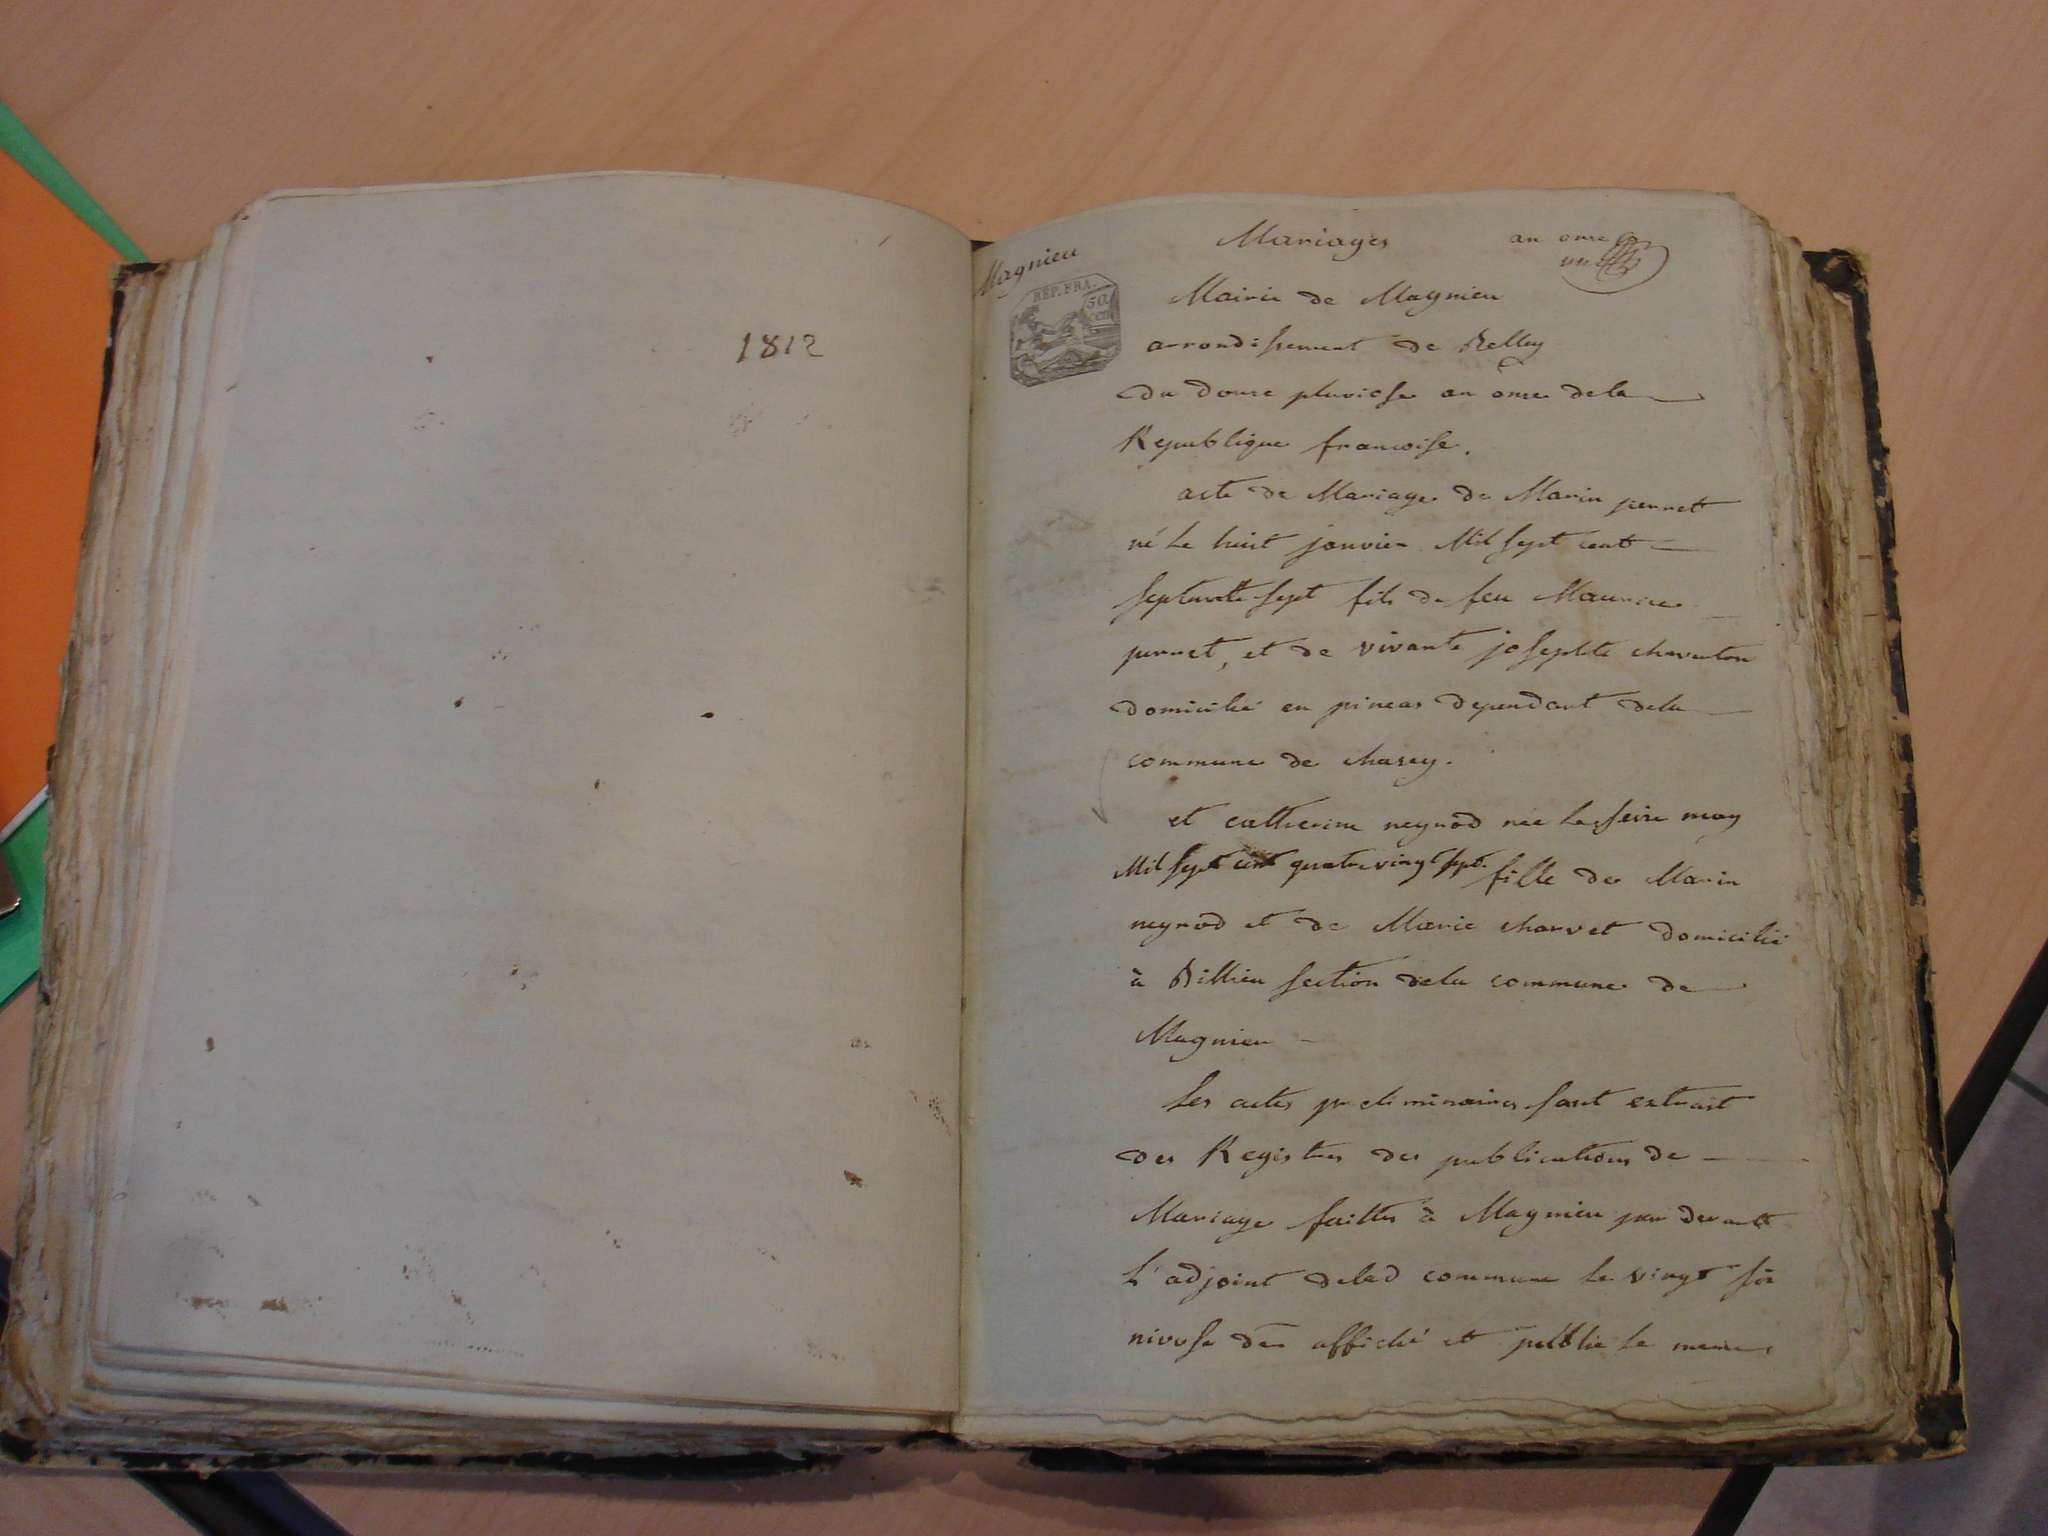 1812
Magnieu
Mariages
an onze
un
REP. FRA.
50
cen
Mairie de Magnieu
arrondissement de Belley
du douze pluviose an onze dela
Republique francoise.
acte de Mariage de Marin pernet
né le huit janvier Mil sept cent
septante sept fils de feu Maurice
pernet, et de vivante josephte charveton
domicilié en pineas dependant dela
commune de chasey.
et catherine neyrod née le seize may
Mil sept cent quatre vingt sept fille de Marin
neyrod et de Marie charvet domicilié
à Billieu section dela commune de
Magnieu
les actes preliminaires sont extrait
des Registres des publications de
Mariage faittes à Magnieu par devant
l'adjoint delad commune le vingt six
nivose der affiché et publié le meme